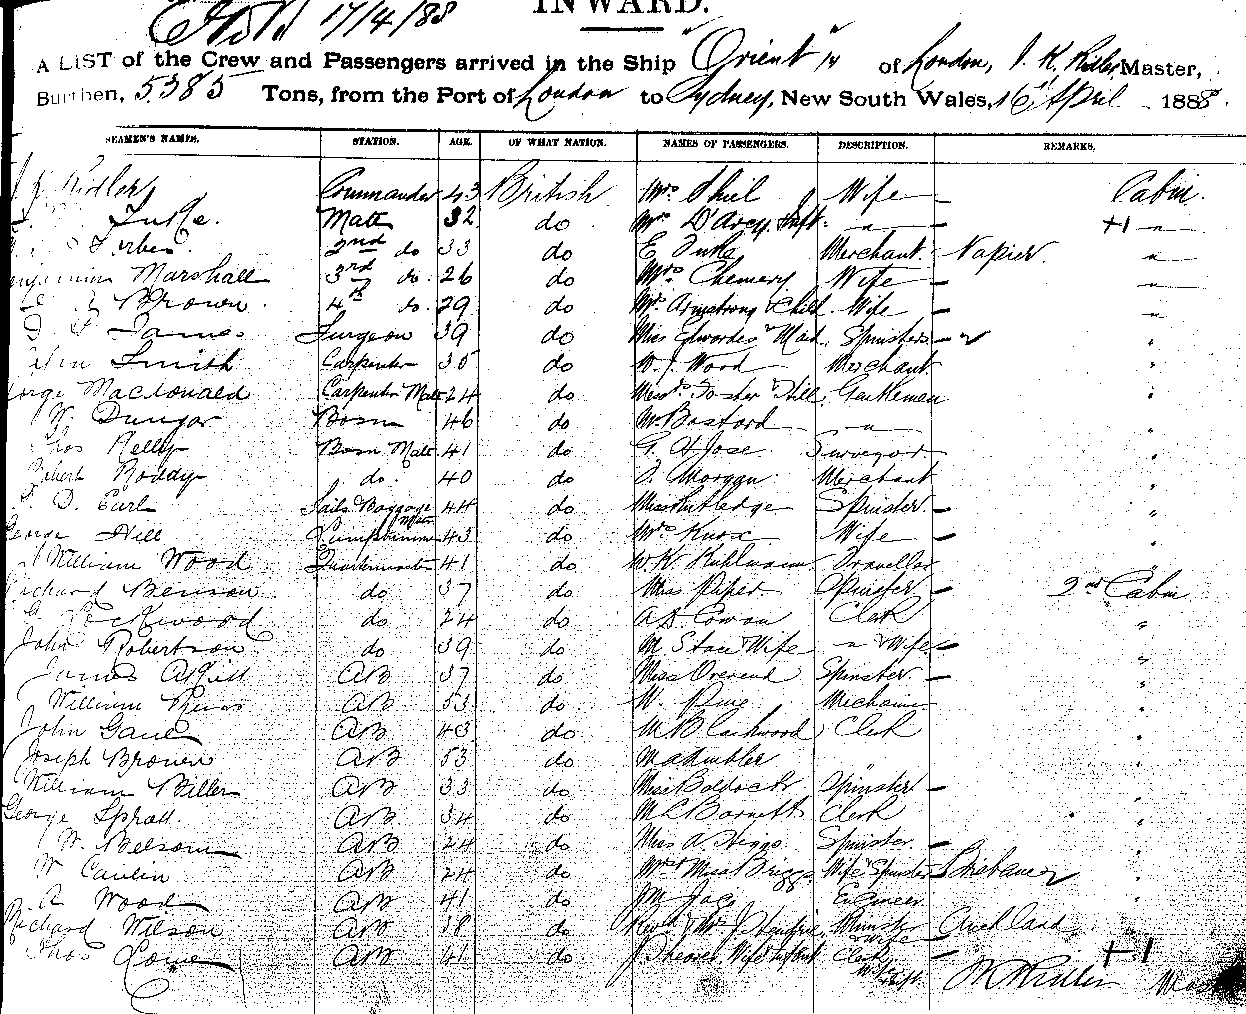 17/4/88
INWARD.
A LIST of the Crew and Passengers arrived in the Ship "Orient" of London, J. K. Ridler Master,
Burthen, 5385 Tons, from the Port of London to Sydney, New South Wales, 16 April 1888.
SEAMEN'S NAMES. STATION. AGE. OF WHAT NATION. NAMES OF PASSENGERS. DESCRIPTION. REMARKS.
Ridler Commander 43 British Mrs Shiel Wife — Cabin
Mate 32 do Mrs D'Arcy Inft — " — +1 "
2nd do 33 do E Duke Merchant Napier "
Marshall 3rd do 26 do Mrs Chemery Wife — "
Brown 4th do 29 do Mrs Armstrong & Child Wife — "
James Surgeon 39 do Miss Edwardes & Maid Spinsters — "
Smith Carpenter 35 do W. J. Wood Merchant "
George Macdonald Carpenter Mate 24 do Foster & Hill Gentleman "
W. Dungar Bosn 46 do Mr Bastard — " — "
Thos Kelly Bosn Mate 41 do G. H Jose Surveyor "
Robert Roddy do 40 do Morgan Merchant "
D. Earl Sails Baggage Mate 44 do Miss Rutledge Spinster — "
George Hill Lamptrimmer 43 do Mrs Knox Wife — "
William Wood Quartermaster 41 do W. K. Kuhlmann Traveller "
Richard Benson do 37 do Miss Piper Spinster — 2nd Cabin
Rockwood do 24 do Cowan Clerk "
John Robertson do 39 do M Stace & Wife — " & Wife — "
James AB 37 do Miss Overend Spinster — "
William AB 53 do W. Pine Mechanic "
John Gane AB 43 do M B Lackwood Clerk "
Joseph Brown AB 53 do "
William Biller AB 33 do Miss Spinster — "
George Spratt AB 34 do M L Barnett Clerk "
W. Belsom AB 24 do Miss A. Higgs Spinster — "
W Caulin AB 24 do Mrs & Miss Briggs Wife & Spinster Brisbane "
A Wood AB 41 do M Jago Engineer "
Richard Wilson AB 38 do Revd & Mrs J. Minister & Wife — Auckland
Thos AB 41 do Wife & Infant Clerk Wife & Inft — +1
Ridler Master